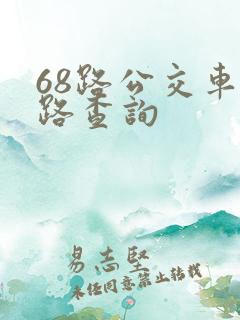 68路公交車
路查詢
易志堅
未经同意禁止转载